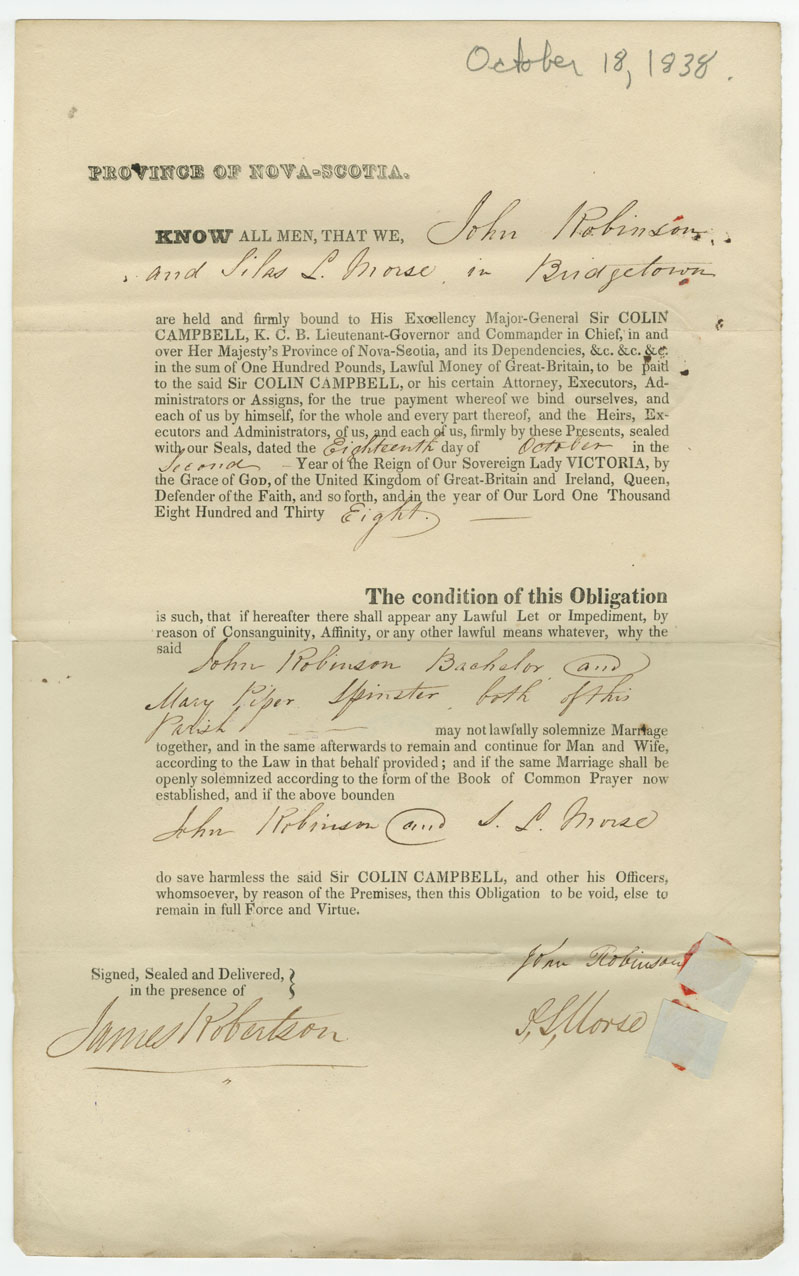 October 18, 1838.
PROVINCE OF NOVA-SCOTIA.
KNOW ALL MEN, THAT WE, John Robinson
and Silas L. Morse, in Bridgetown
are held and firmly bound to His Excellency Major-General Sir COLIN
CAMPBELL, K. C. B. Lieutenant-Governor and Commander in Chief, in and
over Her Majesty's Province of Nova-Scotia, and its Dependencies, &c. &c. &c.
in the sum of One Hundred Pounds, Lawful Money of Great-Britain, to be paid
to the said Sir COLIN CAMPBELL, or his certain Attorney, Executors, Ad-
ministrators or Assigns, for the true payment whereof we bind ourselves, and
each of us by himself, for the whole and every part thereof, and the Heirs, Ex-
ecutors and Administrators, of us, and each of us, firmly by these Presents, sealed
with our Seals, dated the Eighteenth day of October in the
Second – Year of the Reign of Our Sovereign Lady VICTORIA, by
the Grace of GOD, of the United Kingdom of Great-Britain and Ireland, Queen,
Defender of the Faith, and so forth, and in the year of Our Lord One Thousand
Eight Hundred and Thirty Eight. —
The condition of this Obligation
is such, that if hereafter there shall appear any Lawful Let or Impediment, by
reason of Consanguinity, Affinity, or any other lawful means whatever, why the
said John Robinson Bachelor and
Mary Piper Spinster, both of this
Parish — — may not lawfully solemnize Marriage
together, and in the same afterwards to remain and continue for Man and Wife,
according to the Law in that behalf provided; and if the same Marriage shall be
openly solemnized according to the form of the Book of Common Prayer now
established, and if the above bounden
John Robinson and S. L. Morse
do save harmless the said Sir COLIN CAMPBELL, and other his Officers,
whomsoever, by reason of the Premises, then this Obligation to be void, else to
remain in full Force and Virtue.
John Robinson
Signed, Sealed and Delivered,
in the presence of
S. L. Morse
James Robertson